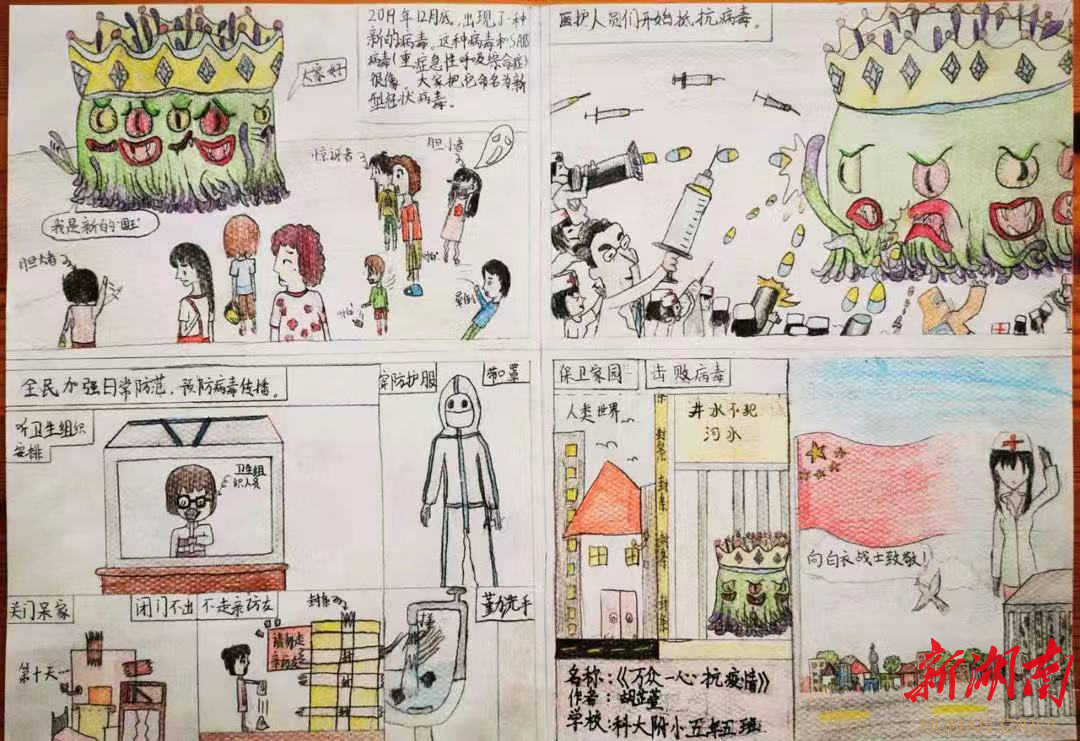 2019年12月底,出现了一种
新的病毒。这种病毒和SAB
病毒(重症急性呼吸综合症)
很像。大家把它命名为新
型冠状病毒。
大家好
我是新的"国王"
惊讶者
胆小者
胆大者
医护人员们开始抵抗病毒。
全民加强日常防范,预防病毒传播。
听卫生组织
安排
卫生组
织人员
穿防护服
带口罩
关门呆家
闭门不出
第十天…
不走亲访友
封条
请勿走
亲访友
勤洗手
保卫家园
击败病毒
人类世界
封条
井水不犯
河水
向白衣战士致敬!
名称:《万众一心·抗疫情》
作者:胡芷堇
学校:科大附小五年五班
新湖南